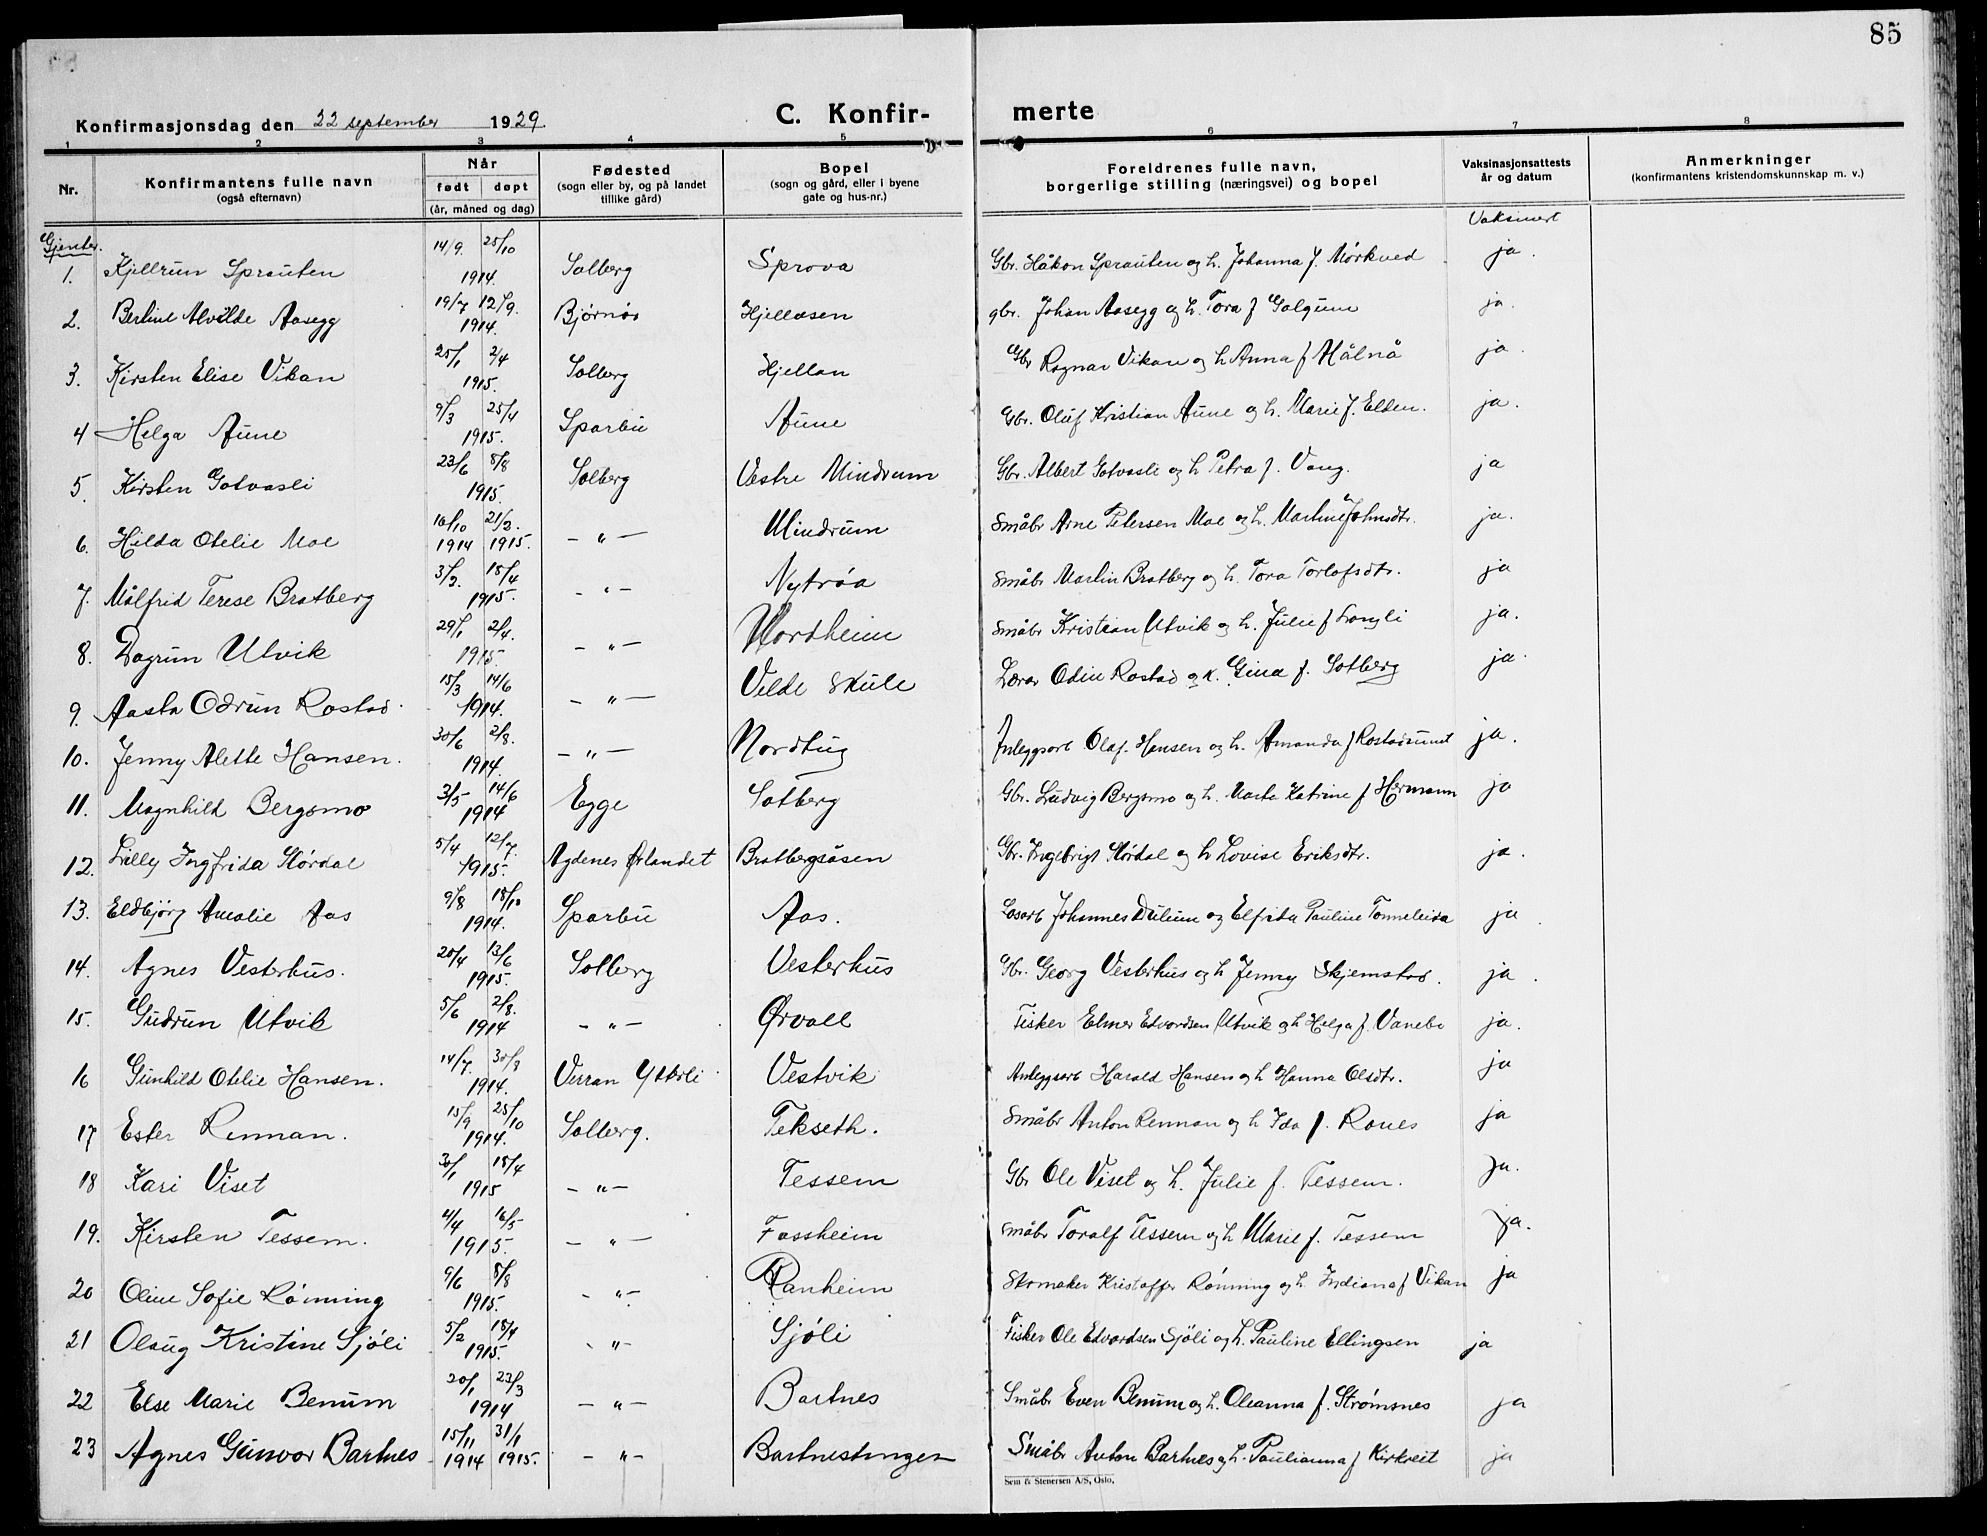 85
Konfirmasjonsdag den 22 september 1929. C. Konfir- merte
1 2 3 4 5 6 7 8
Nr. Konfirmantens fulle navn (også efternavn) Når født døpt (år, måned og dag) Fødested (sogn eller by, og på landet tillike gård) Bopel (sogn og gård, eller i byene gate og hus-nr.) Foreldrenes fulle navn, borgerlige stilling (næringsvei) og bopel Vaksinasjonsattests år og datum Anmerkninger (konfirmantens kristendomskunnskap m. v.)
Gjenter. Vaksinert
1. Kjellrun Sprauten 14/9. 25/10 1914. Solberg Sprova Gbr. Håkon Sprauten og h. Johanna f. Mørkved ja.
2. Berline Alvilde Aasegg 19/7 12/9. 1914. Bjørnør Hjellosen gbr. Johan Aasegg og h. Tora f Galgum ja.
3. Kirsten Elise Vikan 25/1 2/4 1915. Solberg Hjellan Gbr Ragnar Vikan og h Anna f Målnå ja.
4 Helga Aune 9/3 25/4 1915. Sparbu Aune Gbr. Oluf Kristian Aune og h. Marie f. Elden. ja.
5. Kirsten Gotvasli 23/6 8/8 1915. Solberg Vestre Mindrum Gbr. Albert Gotvasli og h Petra f. Vang. ja
6. Hilda Otelie Moe 16/10 1914 21/2. 1915. - " - Mindrum Småbr Arne Petersen Moe og h. Martine Johnsdtr. ja.
7. Målfrid Terese Bratberg 3/2. 18/4 1915. - " - Nytrøa Småbr Martin Bratberg og h. Tora Torlofsdtr. ja
8. Dagrun Utvik 29/1 2/4. 1915. - " - Nordheim Småbr Kristian Utvik og h. Julie f Langli ja.
9. Aasta Odrun Rostad. 15/3 14/6 1914. - " - Velde skule Lærar Odin Rostad og k. Gina f. Solberg ja.
10. Jenny Alette Hansen. 30/6 2/8. 1914. - " - Nordtug Anleggsarb Olaf Hansen og h. Amanda f Rostadsund ja.
11. Magnhild Bergsmo 3/5 14/6 1914 Egge Solberg Gbr. Ludvig Bergsmo og h. Marta Katrine f Hermann ja
12. Lilly Ingfrida Størdal 5/4 12/7. 1915. Agdenes Ørlandet Bratbergsåsen Gbr. Ingebrigt Størdal og h Lovise Eriksdtr. ja.
13. Eldbjørg Amalie Aas 9/8 18/10 1914. Sparbu Aas. Løsarb Johannes Dulum og Elfrida Pauline Tømmeleida ja.
14. Agnes Vesterhus. 20/4 13/6 1915. Solberg Vesterhus Gbr. Georg Vesterhus og h Jenny Skjemstad. ja.
15. Gudrun Utvik 5/6 2/8. 1914 - " - Ørvoll Fisker Elmer Edvardsen Utvik og h Helga f. Vanebo ja.
16 Gunhild Otelie Hansen. 14/7. 30/8 1914. Verran Ytterli Vestvik Anleggsarb Harald Hansen og h Hanna Olsdtr. ja
17 Ester Rennan. 15/9 25/10 1914. Solberg. Tekseth. Småbr Anton Rennan og h Ida f. Roues ja
18 Kari Viset 30/1 18/4 1915 - " - Tessem Gbr Ole Viset og h. Julie f. Tessem. ja.
19. Kirsten Tessem. 4/4 16/5 1915. - " - Fossheim Småbr Toralf Tessem og h Marie f. Tessem ja.
20 Oline Sofie Rønning 9/6 8/8 1915. - " - Ranheim Skomaker Kristoffer Rønning og h. Indiana f Vikan ja
21 Olaug Kristine Sjøli 5/2 18/4 1915. - " - Sjøli Fisker Ole Edvardsen Sjöli og h. Pauline Ellingsen ja
22 Else Marie Benum 20/1 22/3 1914 - " - Bartnes Småbr Even Benum og h. Oleanna f. Strømsnes ja
23 Agnes Gunvor Bartnes 15/11 1914 31/1 1915. - " - Bartnestangen Småbr Anton Bartnes og h. Paulianna f Kirkreit ja
Sem & Stenersen A/S, Oslo.